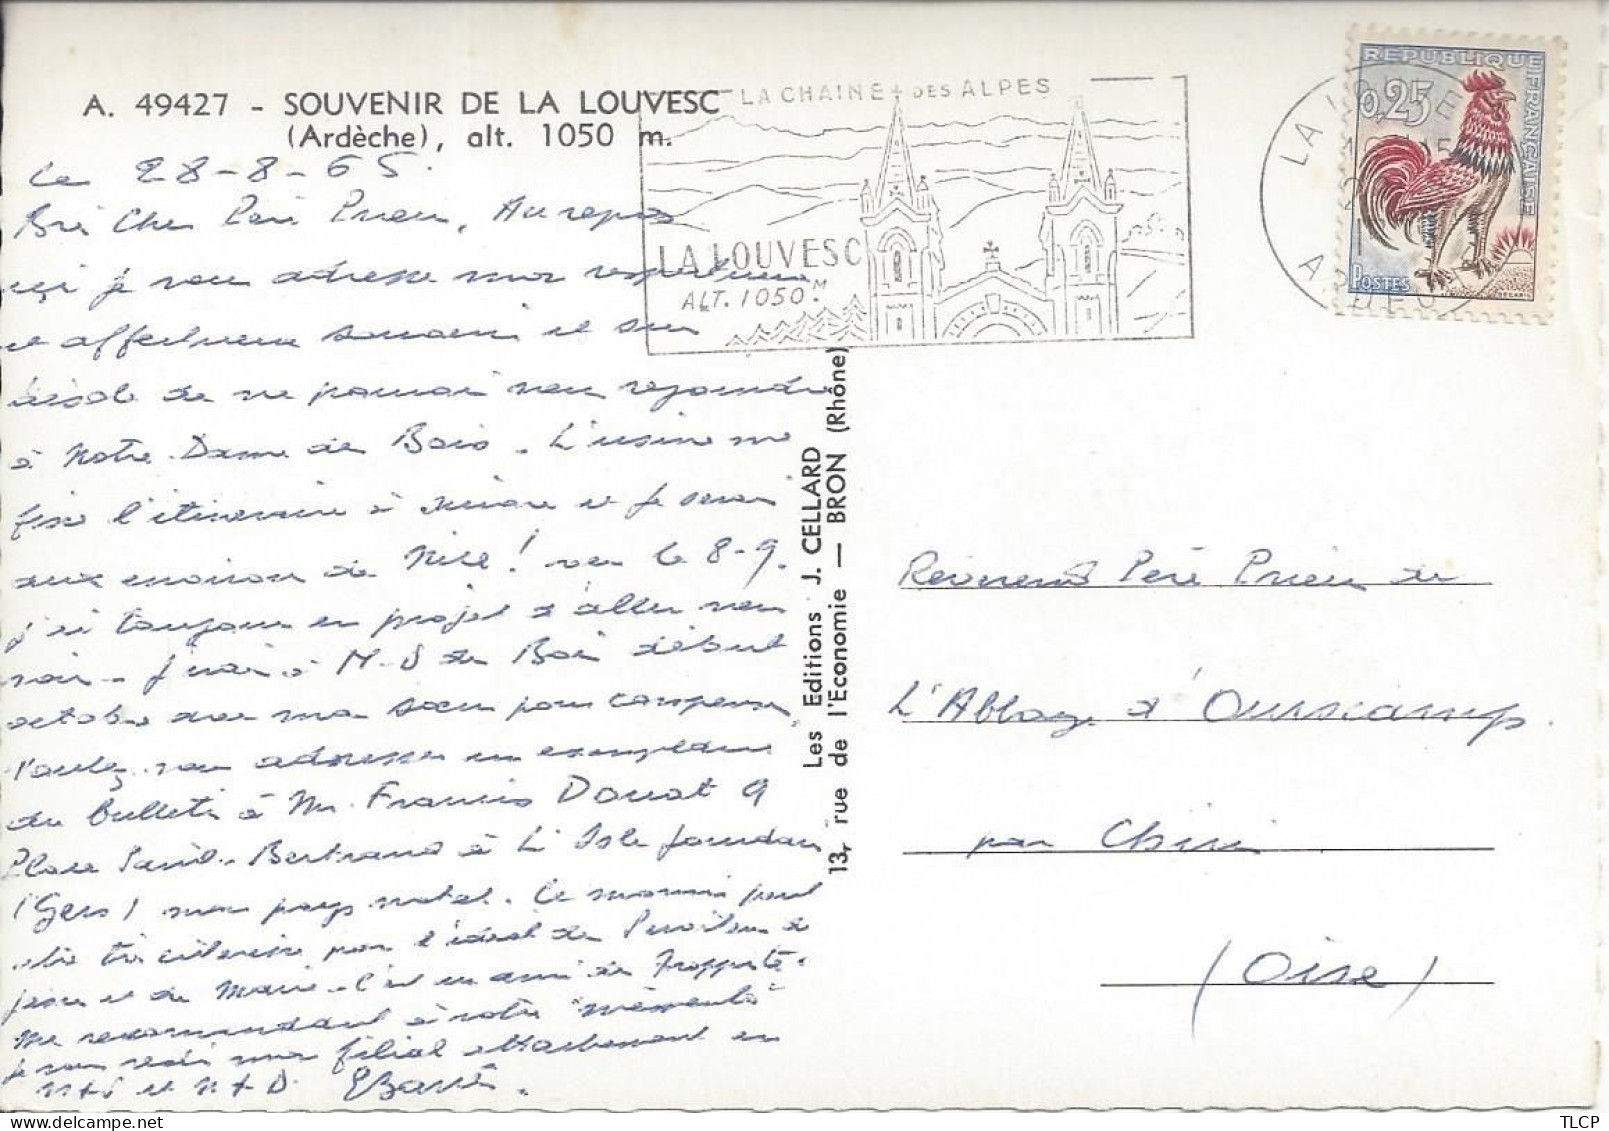 A. 49427 - SOUVENIR DE LA LOUVESC
(Ardèche), alt. 1050 m.
LA CHAINE DES ALPES
LA LOUVESC
ALT. 1050 M
REPUBLIQUE FRANÇAISE
0,25
POSTES
DECARIS
LA
ARDECHE
Le 28-8-65.
Très Cher Père Prieur, Au repos
ici je vous adresse mon respectueux
et affectueux souvenir et suis
désolé de ne pouvoir vous rejoindre
à Notre Dame de Bois. L'usine me
fixe l'itinéraire à suivre et je serai
aux environs de Nice ! vers le 8-9.
j'ai toujours en projet d'aller vous
voir. J'irai à N-D du Bois début
octobre avec ma sœur pour compenser.
Voulez vous adresser un exemplaire
du bulletin à Mr. Francis Douat 9
Place Saint-Bertrand à L'Isle Jourdain
(Gers) mon pays natal. Ce Monsieur peut
être très intéressé par l'idéal des Serviteurs de
Jésus et de Marie. C'est un ami des Trappistes.
Me recommandant à votre "mémento"
je vous redis mon filial attachement en
N+S et N+D.
Les Editions J. CELLARD
13, rue de l'Economie — BRON (Rhône)
Révérend Père Prieur de
L'Abbaye d'Ourscamp.
par Chiri
(Oise)
TLCP